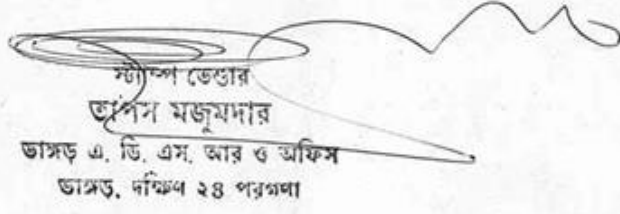 স্ট্যাম্প ভেণ্ডার
তাপস মজুমদার
ভাঙ্গড় এ. ডি. এস. আর ও অফিস
ভাঙ্গড়, দক্ষিণ ২৪ পরগণা